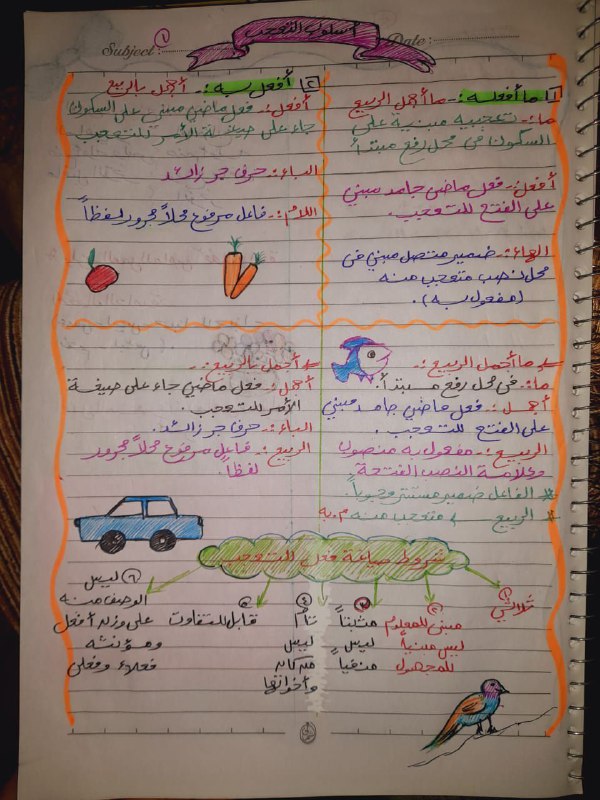 أسلوب التعجب
Subject: ١
Date:
١ ما أفعله :- ما أجمل الربيع
ما :- تعجبيه مبنية على
السكون في محل رفع مبتدأ
أفعل :- فعل ماضي جامد مبني
على الفتح للتعجب.
الهاء :- ضمير متصل مبني في
محل نصب متعجب منه
(مفعول به).
٢ أفعل به :- أجمل بالربيع
أفعل :- فعل ماضي مبني على السكون
جاء على صيغة الأمر للتعجب
الباء :- حرف جر زائد
اللام :- فاعل مرفوع محلاً مجرور لفظاً
ما أجمل الربيع :-
ما :- في محل رفع مبتدأ.
أجمل :- فعل ماضي جامد مبني
على الفتح للتعجب.
الربيع :- مفعول به منصوب
وعلامة النصب الفتحة.
* الفاعل ضمير مستتر وجوباً.
* الربيع متعجب منه م.به
أجمل بالربيع :-
أجمل :- فعل ماضي جاء على صيغة
الأمر للتعجب.
الباء :- حرف جر زائد.
الربيع :- فاعل مرفوع محلاً مجرور
لفظاً.
شروط صياغة فعل التعجب
١ ثلاثي
٢ مبني للمعلوم
ليس مبنياً
للمجهول
٣ مثبتاً
ليس
منفياً
٤ تام
ليس
من كان
وأخواتها
٥ قابل للتفاوت
٦ ليس
الوصف منه
على وزن أفعل
ومؤنثه
فعلاء وفعلى